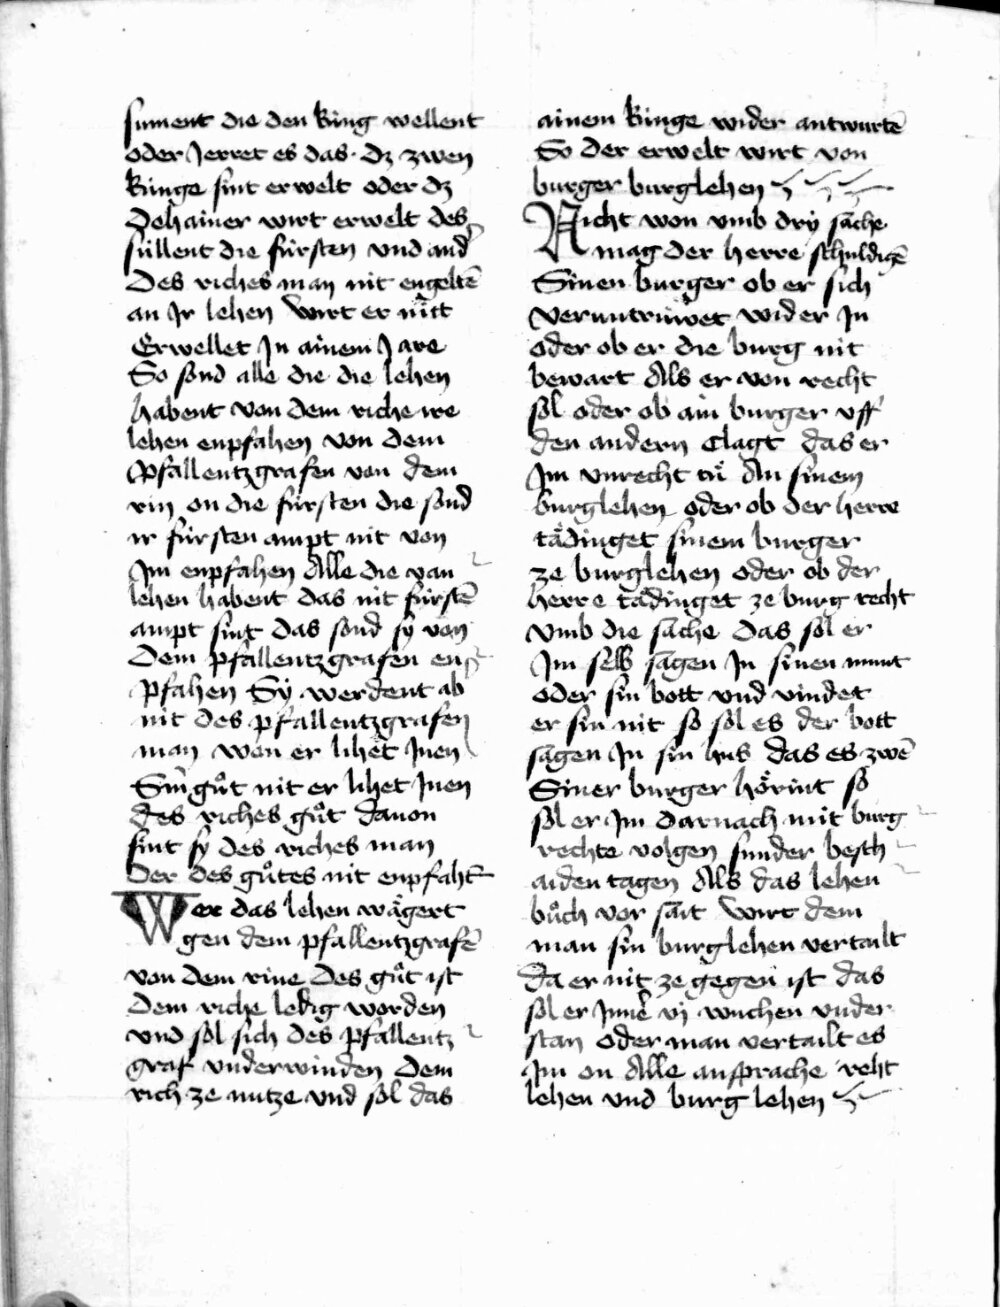 sument die den küng wellent
oder Jerret es das · dz zwen
künge sint erwelt oder dz
Dehainer wirt erwelt des
süllent die fürsten vnd and̄
Des riches man nit engeltē
an Jr lehen Wirt er nitt
Erwellet Jn ainem Jare
So sond alle die die lehen
habent von dem riche ire
lehen enpfahen von dem
Pfallentzgrafen von dem
rin on die fürsten die sond
ir fürsten ampt nit von
Jm enpfahen Alle die van
lehen habent das nit fürstē
ampt sint das sond sy von
Dem pfallentzgrafen en
pfahen Sÿ werdent ab
nit des pfallentzgrafen
man wen er lihet Jnen
Sin gůt nit er lihet Jnen
des riches gůt dauon
sint sy des riches man
Der des gůtes nit enpfaht
Wer das lehen wägert
gen dem pfallentzgrafē
von dem rine Des gůt ist
Dem riche ledig worden
vnd sol sich des Pfallentz
graf vnderwinden Dem
rich ze nutze vnd sol das
ainem künge wider antwurtē
So der erwelt wirt von
burger burglehen
Nicht won vmb drÿ sache
mag der herre schuldigē
Sinen burger ob er sich
veruntrüwet wider Jn
oder ob er die burg nit
bewart Als er von recht
sol oder ob ain burger vff
den andern clagt das er
Jm vnrecht tů An sinem
burglehen oder ob der herre
tädinget sinem burger
ze burglehen oder ob der
herre tädinget ze burg recht
vmb die sache Das sol er
Jm selb sagen Jn sinen munt
oder sin bott vnd vindet
er sin nit so sol es der bott
sagen Jn sin hus das es zwē
Siner burger hörint so
sol er Jm darnach mit burg
rechte volgen sunder besch
aiden tagen Als das lehen
bůch vor sait Wirt dem
man sin burglehen vertailt
da er nit ze gegen ist das
sol er Jnnē vj wuchen vnder
stan oder man vertailt es
Jm on Alle ansprache reht
lehen vnd burg lehen